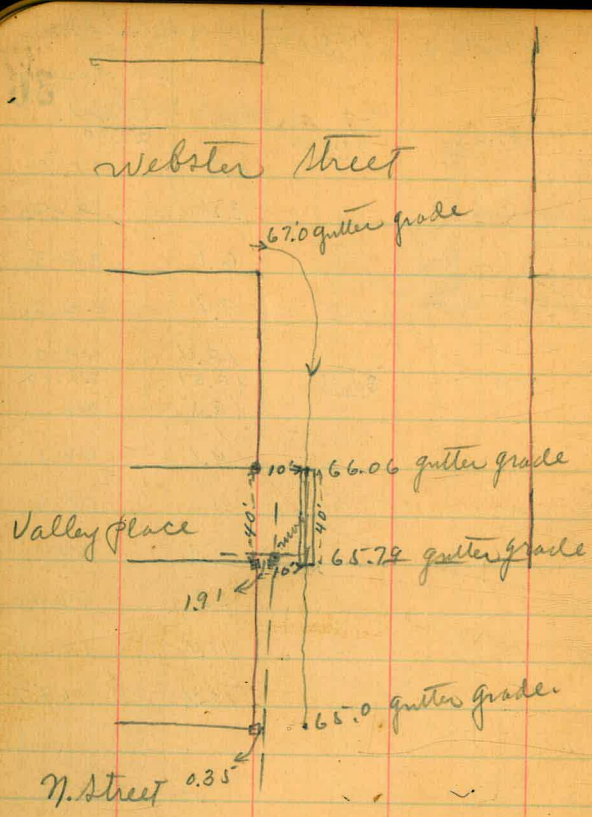 Webster Street
67.0 gutter grade
10' 66.06 gutter grade
Valley place
40'
40'
10' 65.79 gutter grade
1.91
65.0 gutter grade.
0.35
N. Street